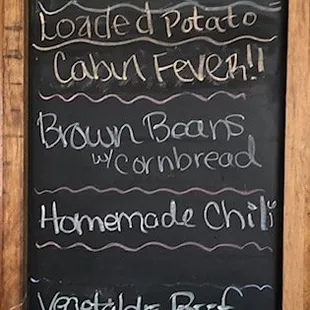 Loaded Potato
Cabin Fever!!
Brown Beans
w/ Cornbread
Homemade Chili
Vegetable Beef